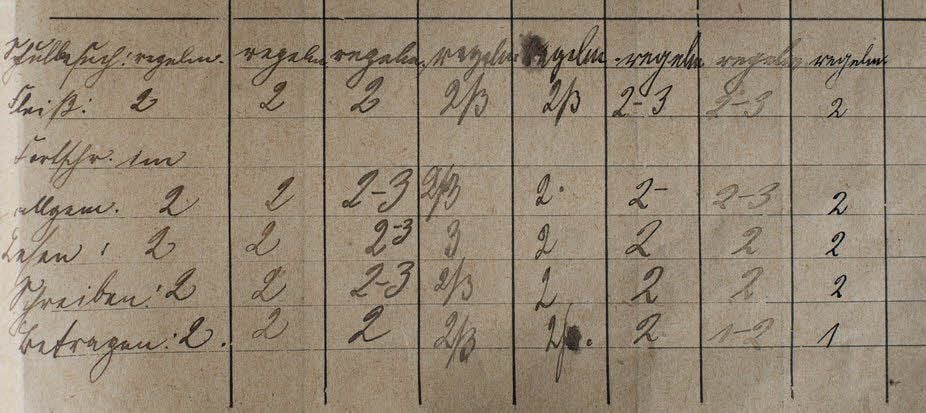 Schulbesuch: regelm. regelm. regelm. regelm. regelm. regelm. regelm. regelm.
Fleiß: 2 2 2 2/3 2/3 2-3 2-3 2
Fortschr. im
allgem. 2 2 2-3 2/3 2. 2- 2-3 2
Lesen: 2 2 2-3 3 2 2 2 2
Schreiben: 2 2 2-3 2/3 2 2 2 2
Betragen: 2. 2 2 2/3 2. 1-2 1